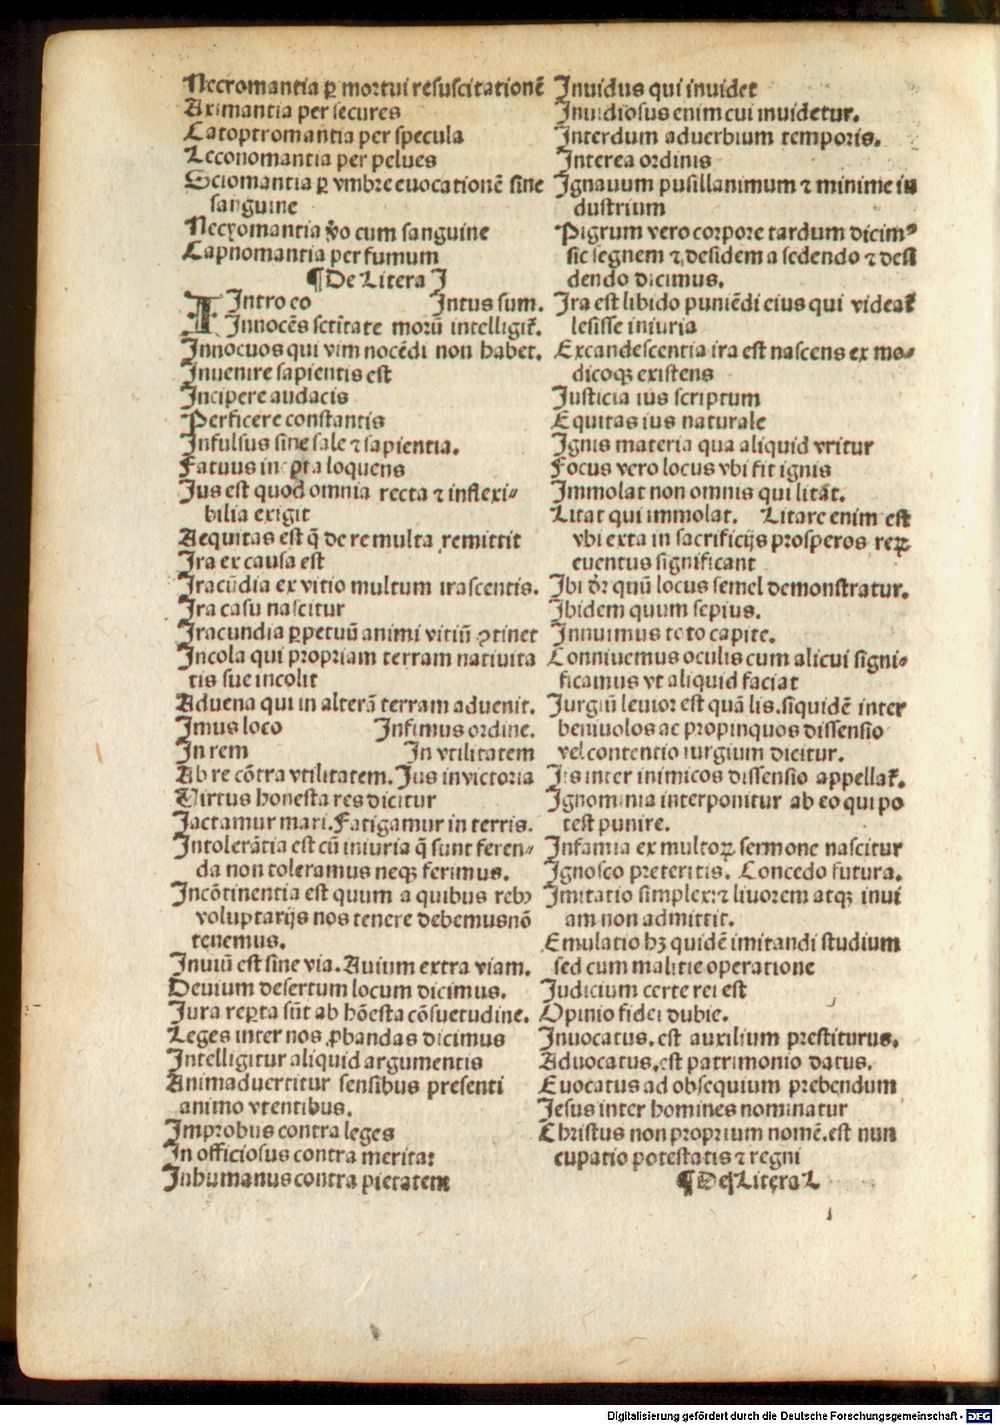 Necromantia ꝑ mortui resuscitationē
Aximantia per secures
Catoptromantia per specula
Leconomantia per pelues
Sciomantia ꝑ vmbre euocationē sine
sanguine
Necyomantia ỽo cum sanguine
Capnomantia per fumum
¶De Litera I
Intro eo Intus sum.
Innocēs sctītate morū intelligit᷑.
Innocuos qui vim nocēdi non habet.
Inuenire sapientis est
Incipere audacis
Perficere constantis
Insulsus sine sale ⁊ sapientia.
Fatuus inepta loquens
Ius est quod omnia recta ⁊ inflexi⸗
bilia exigit
Aequitas est q̄ de re multa remittit
Ira ex causa est
Iracūdia ex vitio multum irascentis.
Ira casu nascitur
Iracundia ꝑpetuū animi vitiū ꝯtinet
Incola qui propriam terram natiuita
tis sue incolit
Aduena qui in alterā terram aduenit.
Imus loco Infimus ordine.
In rem In vtilitatem
Ab re cōtra vtilitatem. Ius inuictoria
Virtus honesta res dicitur
Iactamur mari. Fatigamur in terris.
Intolerātia est cū iniuria q̄ sunt feren⸗
da non toleramus neqꝫ ferimus.
Incōtinentia est quum a quibus rebꝰ
voluptarijs nos tenere debemusnō
tenemus.
Inuiū est sine via. Auium extra viam.
Deuium desertum locum dicimus.
Iura reꝑta sūt ab hōesta cōsuetudine.
Leges inter nos ꝓbandas dicimus
Intelligitur aliquid argumentis
Animaduertitur sensibus presenti
animo vtentibus.
Improbus contra leges
In officiosus contra merita:
Inhumanus contra pietatem
Inuidus qui inuidet
Inuidiosus enim cui inuidetur.
Interdum aduerbium temporis.
Interea ordinis
Ignauum pusillanimum ⁊ minime in
dustrium
Pigrum vero corpore tardum dicimꝰ
sic segnem ⁊ desidem a sedendo ⁊ desi
dendo dicimus.
Ira est libido puniēdi eius qui videat᷑
lesisse iniuria
Excandescentia ira est nascens ex mo⸗
dicoqꝫ existens
Iusticia ius scriptum
Equitas ius naturale
Ignis materia qua aliquid vritur
Focus vero locus vbi fit ignis
Immolat non omnis qui litat.
Litat qui immolat. Litare enim est
vbi exta in sacrificijs prosperos reꝝ
euentus significant
Ibi dr̄ quū locus semel demonstratur.
Ibidem quum sepius.
Innuimus toto capite.
Conniuemus oculis cum alicui signi⸗
ficamus vt aliquid faciat
Iurgiū leuior est quā lis. siquidē inter
beniuolos ac propinquos dissensio
vel contentio iurgium dicitur.
Lis inter inimicos dissensio appellat᷑.
Ignominia interponitur ab eo qui po
test punire.
Infamia ex multoꝝ sermone nascitur
Ignosco preteritis. Concedo futura.
Imitatio simplex: ⁊ liuorem atqꝫ inui
am non admittit.
Emulatio hꝫ quidē imitandi studium
sed cum malitie operatione
Iudicium certe rei est
Opinio fidei dubie.
Inuocatus. est auxilium prestiturus.
Aduocatus. est patrimonio datus.
Euocatus ad obsequium prebendum
Iesus inter homines nominatur
Christus non proprium nomē. est nun
cupatio potestatis ⁊ regni
¶De Litera L
Digitalisierung gefördert durch die Deutsche Forschungsgemeinschaft - DFG